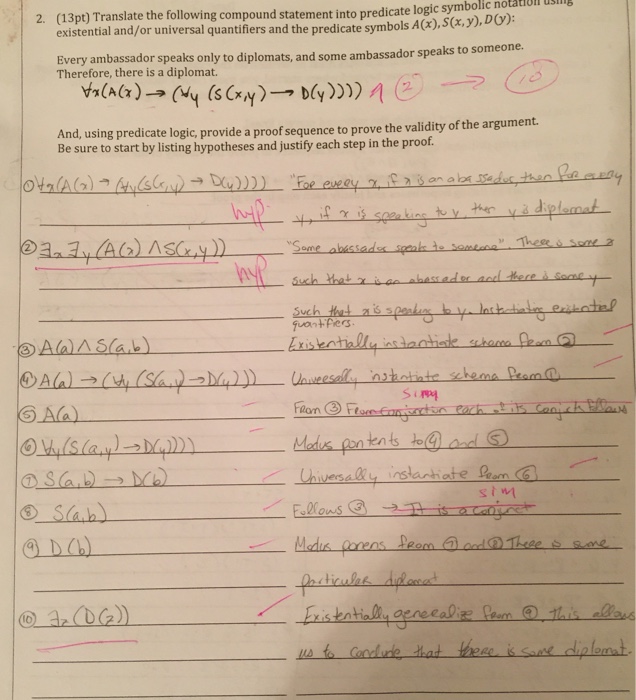 2. (13pt) Translate the following compound statement into predicate logic symbolic notation using
existential and/or universal quantifiers and the predicate symbols A(x), S(x, y), D(y):
Every ambassador speaks only to diplomats, and some ambassador speaks to someone.
Therefore, there is a diplomat.
∀x(A(x) → (∀y (S(x,y) → D(y)))) ∧ ② → ⑩
And, using predicate logic, provide a proof sequence to prove the validity of the argument.
Be sure to start by listing hypotheses and justify each step in the proof.
① ∀x(A(x) → (∀y(S(x,y) → D(y)))) "For every x, if x is an abassador, then for every
hyp. y, if x is speaking to y, then y is diplomat
② ∃x ∃y (A(x) ∧ S(x,y)) "Some abassador speak to someone". There is some x
hyp such that x is an abassador and there is some y
such that x is speaking to y. Instantiating existential
quantifiers.
③ A(a) ∧ S(a,b) Existentially instantiate schama from ②
④ A(a) → (∀y (S(a,y) → D(y))) Universally instantiate schema from ①
sim
⑤ A(a) From ③ From conjunction each of its conjuct follows
⑥ ∀y(S(a,y) → D(y)))) Modus pontents to ④ and ⑤
⑦ S(a,b) → D(b) Universally instantiate from ⑥
sim
⑧ S(a,b) Follows ③ → It is a conjunct
⑨ D(b) Modus ponens from ⑦ and ⑧ There is some
particular diplomat
⑩ ∃z(D(z)) Existentially generalize from ⑨, this allows
us to conclude that there is some diplomat.